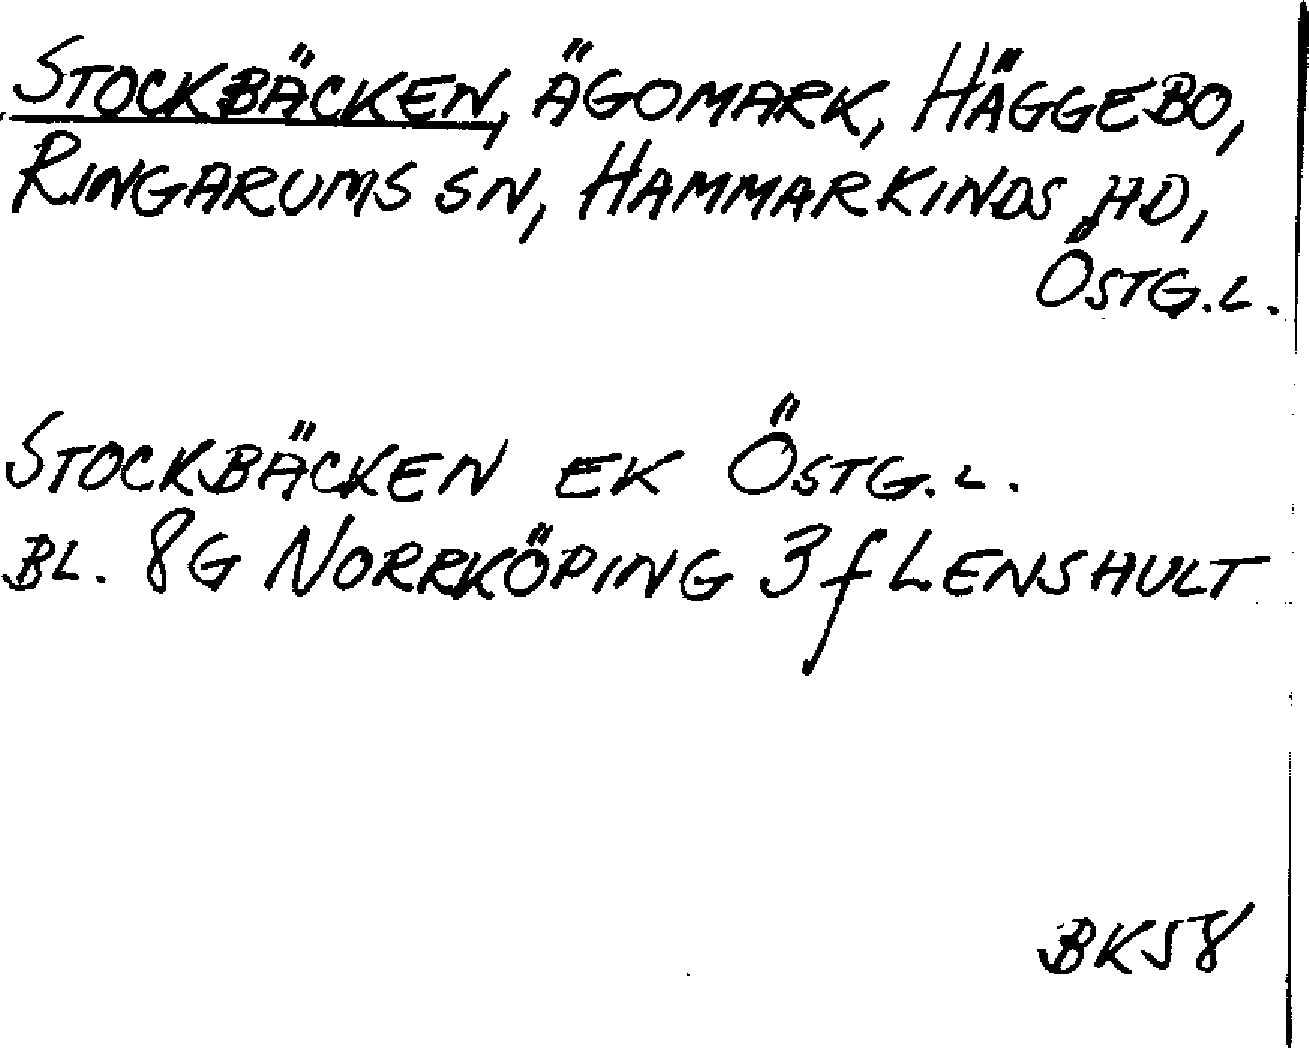 STOCKBÄCKEN, ÄGOMARK, HÄGGEBO,
RINGARUMS SN, HAMMARKINDS HD,
ÖSTG.L.
STOCKBÄCKEN EK ÖSTG.L.
BL. 8G NORRKÖPING 3f LENSHULT
BK58